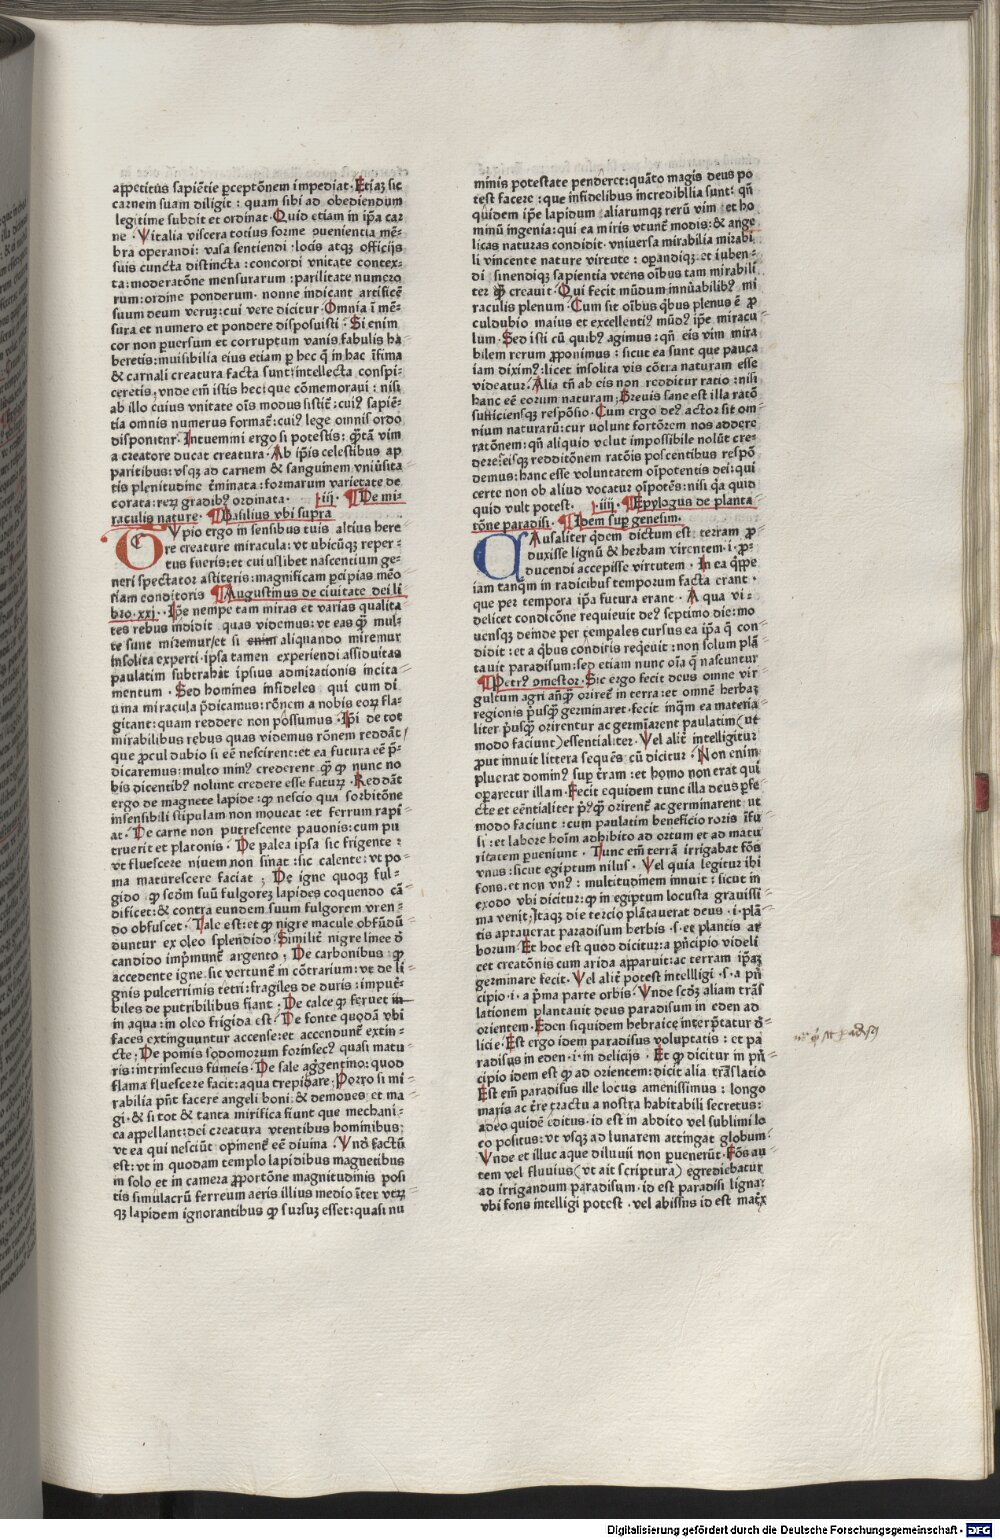 appetitus sapiētie ꝑceptōnem impediat. Etiaꝫ sic
carnem suam diligit : quam sibi ad obediendum
legitime subdit et ordinat. Quid etiam in ip̄a car
ne . Vitalia viscera totius forme ꝓuenientia mē⸗
bra operandi: vasa sentiendi : locis atqꝫ officijs
suis cuncta distincta : concordi vnitate contex⸗
ta: moderatōne mensurarum : parilitate numero
rum: ordine ponderum. nonne indicant artificē
suum deum veruꝫ: cui vere dicitur. Omnia ī mē⸗
sura et numero et pondere disposuisti . Si enim
cor non ꝑuersum et corruptum vanis fabulis ha
beretis: inuisibilia eius etiam ꝑ hec q̄ in hac īfima
& carnali creatura facta sunt: intellecta conspi⸗
ceretis: vnde em̄ istis hec: que cōmemoraui : nisi
ab illo cuius vnitate oīs modus sistit̄: cuiꝰ sapiē⸗
tia omnis numerus format̄: cuiꝰ lege omnis ordo
disponitur. Intuemini ergo si potestis: q̄tā vim
a creatore ducat creatura . Ab ip̄is celestibus ap
paritibus: vsqꝫ ad carnem & sanguinem vniūsita
tis plenitudine t̄minata : formarum varietate de
corata: reꝝ gradibꝰ ordinata. .iij. ¶De mi⸗
raculis nature. ¶Basilius vbi supra
Cvpio ergo in sensibus tuis altius here
re creature miracula: vt vbicūqꝫ reper⸗
tus fueris: et cuiuslibet nascentium ge⸗
neri spectator astiteris: magnificam ꝑcipias mēo
riam conditoris ¶Augustinus de ciuitate dei li
bro. xxj. . Ip̄e nempe tam miras et varias qualita⸗
tes rebus indidit quas videmus: vt eas q̄ mul⸗
te sunt miremur/et si enim aliquando miremur
insolita experti . ipsa tamen experiendi assiduitas
paulatim subtrahat ipsius admirationis incita⸗
mentum . Sed homines infideles qui cum di
uina miracula p̄dicamus: rōnem a nobis eoꝝ fla⸗
gitant: quam reddere non possumus . Ip̄i de tot
mirabilibus rebus quas videmus rōnem reddāt/
que ꝓcul dubio si eē nescirent: et ea futura eē p̄⸗
dicaremus: multo minꝰ crederent q̄ ꝙ nunc no
bis dicentibꝰ nolunt credere esse futuꝝ . Reddāt
ergo de magnete lapide : ꝙ nescio qua sorbitōne
insensibili stipulam non moueat : et ferrum rapi
at . De carne non putrescente pauonis: cum pu
truerit et platonis . De palea ipsa sic frigente :
vt fluescere niuem non sinat : sic calente: vt po⸗
ma maturescere faciat ; De igne quoqꝫ ful⸗
gido ꝙ scōm suū fulgoreꝫ lapides coquendo cā⸗
dificet: & contra eundem suum fulgorem vren⸗
do obfuscet . Tale est: et ꝙ nigre macule obfūdū
duntur ex oleo splendido . Similit̄ nigre linee d̄
candido imp̄munt̄ argento ; De carbonibus ꝙ
accedente igne sic vertunt̄ in cōtrarium: vt de li⸗
gnis pulcerrimis tetri: fragiles de duris : imput̄⸗
biles de putribilibus fiant . De calce ꝙ feruet in
in aqua: in oleo frigida est . De fonte quodā vbi
faces extinguuntur accense: et accendunt̄ extin⸗
cte ; De pomis sodomorum forinsecꝰ quasi matu⸗
ris: intrinsecus fumeis . De sale agrigentino: quod
flama fluescere facit: aqua trepidare ; Porro si mi⸗
rabilia pn̄t facere angeli boni: & demones et ma⸗
gi. & si tot & tanta mirifica fiunt que mechani⸗
ca appellant: dei creatura vtentibus hominibus;
vt ea qui nesciūt opinent̄ eē diuina . Vnd̄ factū
est: vt in quodam templo lapidibus magnetibus
in solo et in camera ꝓportōne magnitudinis posi
tis simulacrū ferreum aeris illius medio īter vtꝝ
qꝫ lapidem ignorantibus ꝙ sursuꝫ esset: quasi nu
minis potestate penderet: quāto magis deus po
test facere : que infidelibus incredibilia sunt: qn̄
quidem ip̄e lapidum aliarumqꝫ rerū vim et ho
minū ingenia: qui ea miris vtunt̄ modis: & ange
licas naturas condidit . vniuersa mirabilia mirabi⸗
li vincente nature virtute : oꝑandiqꝫ et iuben⸗
di sinendiqꝫ sapientia vtens oībus tam mirabili
ter q̄ creauit . Qui fecit mūdum innūabilibꝰ mi
raculis plenum . Cum sit oībus q̄bus plenus ē ꝓ
culdubio maius et excellentiꝰ mūdꝰ ip̄e miracu⸗
lum . Sed isti cū quibꝰ agimus: qn̄ eis vim mira
bilem rerum ꝓponimus : sicut ea sunt que pauca
iam diximꝰ: licet insolita vis cōtra naturam esse
videatur. Alia tn̄ ab eis non redditur ratio : nisi
hanc eē eorum naturam; Breuis sane est illa ratō
sufficiensqꝫ respōsio . Cum ergo deꝰ actor sit om⸗
nium naturarū: cur volunt fortiorem nos addere
ratōnem: qn̄ aliquid velut impossibile nolūt cre⸗
dere: eisqꝫ redditōnem ratōis poscentibus respō
demus: hanc esse voluntatem oīpotentis dei: qui
certe non ob aliud vocatur oīpotēs: nisi q̄a quid
quid vult potest. .iiij. ¶Epylogus de planta⸗
tōne paradisi. ¶Idem suꝑ genesim.
CAusaliter q̄dem dictum est terram ꝓ
duxisse lignū & herbam virentem. i. ꝓ⸗
ducendi accepisse virtutem . In ea q̄ppe
iam tanq̄m in radicibus temporum facta erant .
que per tempora ip̄a futura erant . A qua vi⸗
delicet conditōne requieuit deꝰ septimo die: mo
uensqꝫ deinde per temporales cursus ea ip̄a q̄ con⸗
didit : et a q̄bus conditis req̄euit: non solum plā⸗
tauit paradisum: sed etiam nunc oīa q̄ nascuntur
¶Petrꝰ ꝯmestor . Sic ergo fecit deus omne vir⸗
gultum agri anq̄ oriret̄ in terra: et omnē herbaꝫ
regionis p̄usq̄ germinaret . fecit inq̄m ea materia⸗
liter p̄usq̄ orirentur ac germīarent paulatim (ut
modo faciunt) essentialiter . Vel alit̄ intelligitur
ꝓut innuit littera sequēs cū dicitur . Non enim
pluerat dominꝰ suꝑ t̄ram : et homo non erat qui
oꝑaretur illam . Fecit equidem tunc illa deus ꝑfe⸗
cte et eēntialiter p̄ꝰq̄ orirent̄ ac germinarent ut
modo faciunt : cum paulatim beneficio roris īfu⸗
si : et labore hoīm adhibito ad ortum et ad matu
ritatem ꝑueniunt . Tunc em̄ terrā irrigabat fōs
vnus: sicut egiptum nilus . Vel quia legitur ibi
fons. et non vnꝰ : multitudinem innuit : sicut in
exodo vbi dicitur: ꝙ in egiptum locusta grauissi⸗
ma venit; Itaqꝫ die tercio plātauerat deus . i. plā⸗
tis aptauerat paradisum herbis . s. et plantis ar
borum . Et hoc est quod dicitur: a pn̄cipio videli
cet creatōnis cum arida apparuit: ac terram ip̄aꝫ
germinare fecit . Vel alit̄ potest intelligi . s. a pn̄
cipio . i. a p̄ma parte orbis . Vnde scdꝫ aliam trās⸗
lationem plantauit deus paradisum in eden ad
orientem . Eden siquidem hebraice interp̄tatur d̄⸗
licie . Est ergo idem paradisus voluptatis : et pa
radisus in eden . i. in delicijs . Et ꝙ dicitur in pn̄⸗
cipio idem est ꝙ ad orientem: dicit alia trāslatio
Est em̄ paradisus ille locus amenissimus : longo
maris ac t̄re tractu a nostra habitabili secretus:
adeo quidē editus. id est in abdito vel sublimi lo
co positus: vt vsqꝫ ad lunarem attingat globum.
Vnde et illuc aque diluuij non ꝑuenerūt . Fōs au
tem vel fluuius (vt ait scriptura) egrediebatur
ad irrigandum paradisum . id est paradisi lignaꝫ
vbi fons intelligi potest . vel abissus id est mat̄x
Digitalisierung gefördert durch die Deutsche Forschungsgemeinschaft - DFG